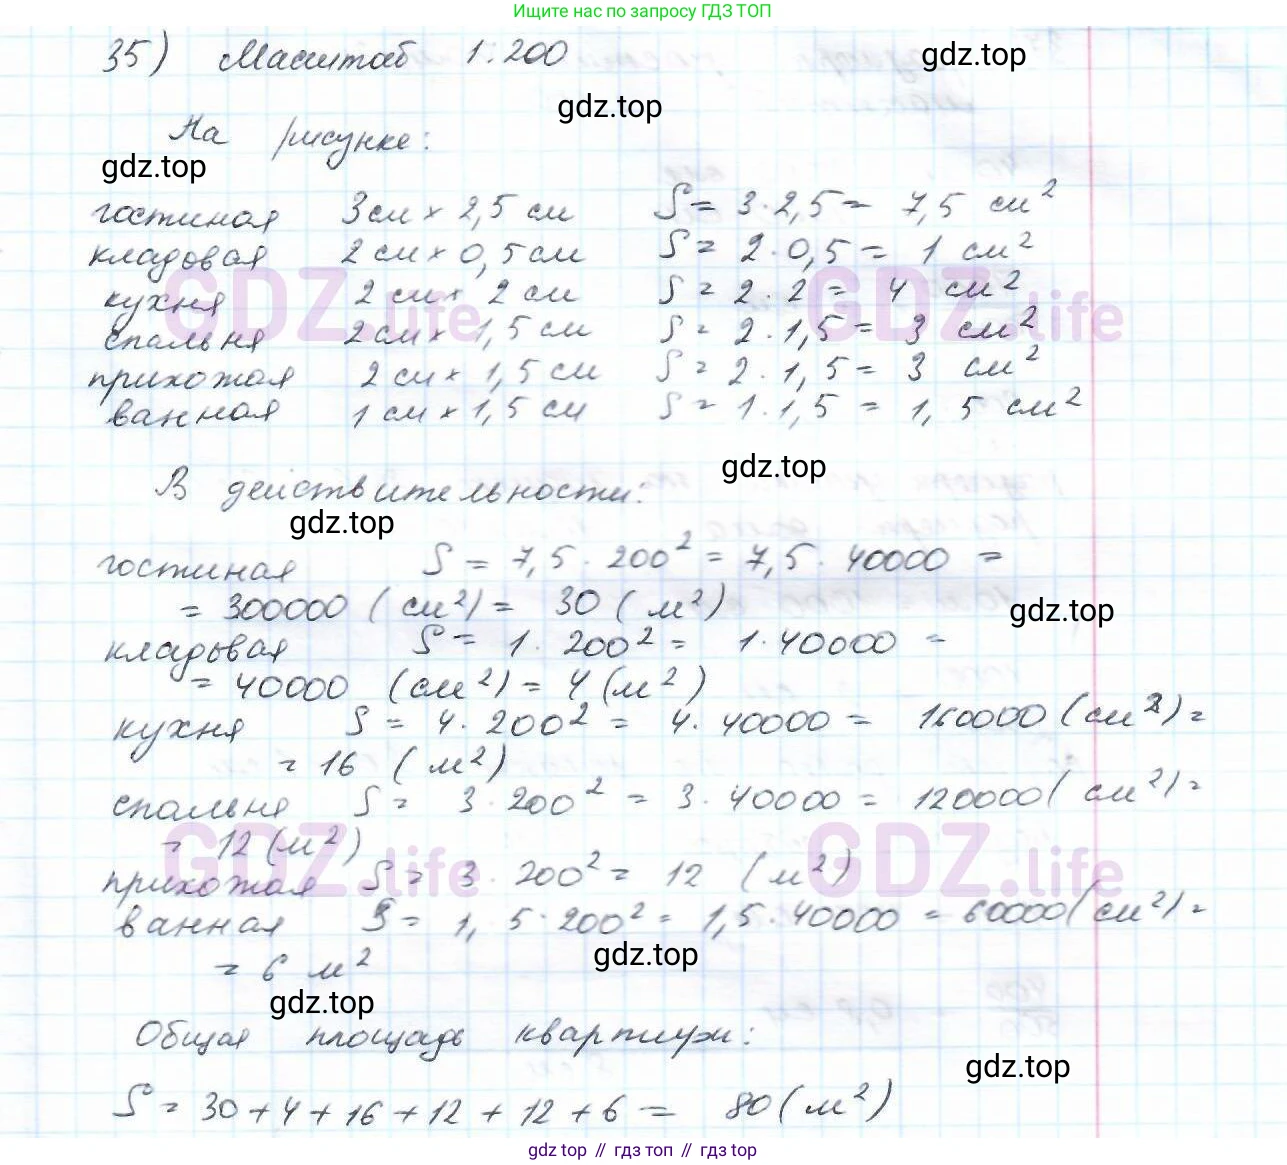 Ищите нас по запросу ГДЗ ТОП
35) Масштаб 1:200
gdz.top
gdz.top
На рисунке:
gdz.top
гостиная 3 см × 2,5 см S = 3·2,5 = 7,5 см²
кладовая 2 см × 0,5 см S = 2·0,5 = 1 см²
GDZ.life GDZ.life
кухня 2 см × 2 см S = 2·2 = 4 см²
спальня 2 см × 1,5 см S = 2·1,5 = 3 см²
прихожая 2 см × 1,5 см S = 2·1,5 = 3 см²
ванная 1 см × 1,5 см S = 1·1,5 = 1,5 см²
gdz.top
В действительности:
gdz.top
гостиная S = 7,5·200² = 7,5·40000 =
= 300000 (см²) = 30 (м²)
gdz.top
кладовая S = 1·200² = 1·40000 =
= 40000 (см²) = 4 (м²)
кухня S = 4·200² = 4·40000 = 160000 (см²) =
= 16 (м²)
спальня S = 3·200² = 3·40000 = 120000 (см²) =
= 12 (м²)
GDZ.life GDZ.life
прихожая S = 3·200² = 12 (м²)
ванная S = 1,5·200² = 1,5·40000 = 60000 (см²) =
= 6 м²
gdz.top
gdz.top
Общая площадь квартиры:
gdz.top
S = 30 + 4 + 16 + 12 + 12 + 6 = 80 (м²)
gdz top // гдз топ // gdz top